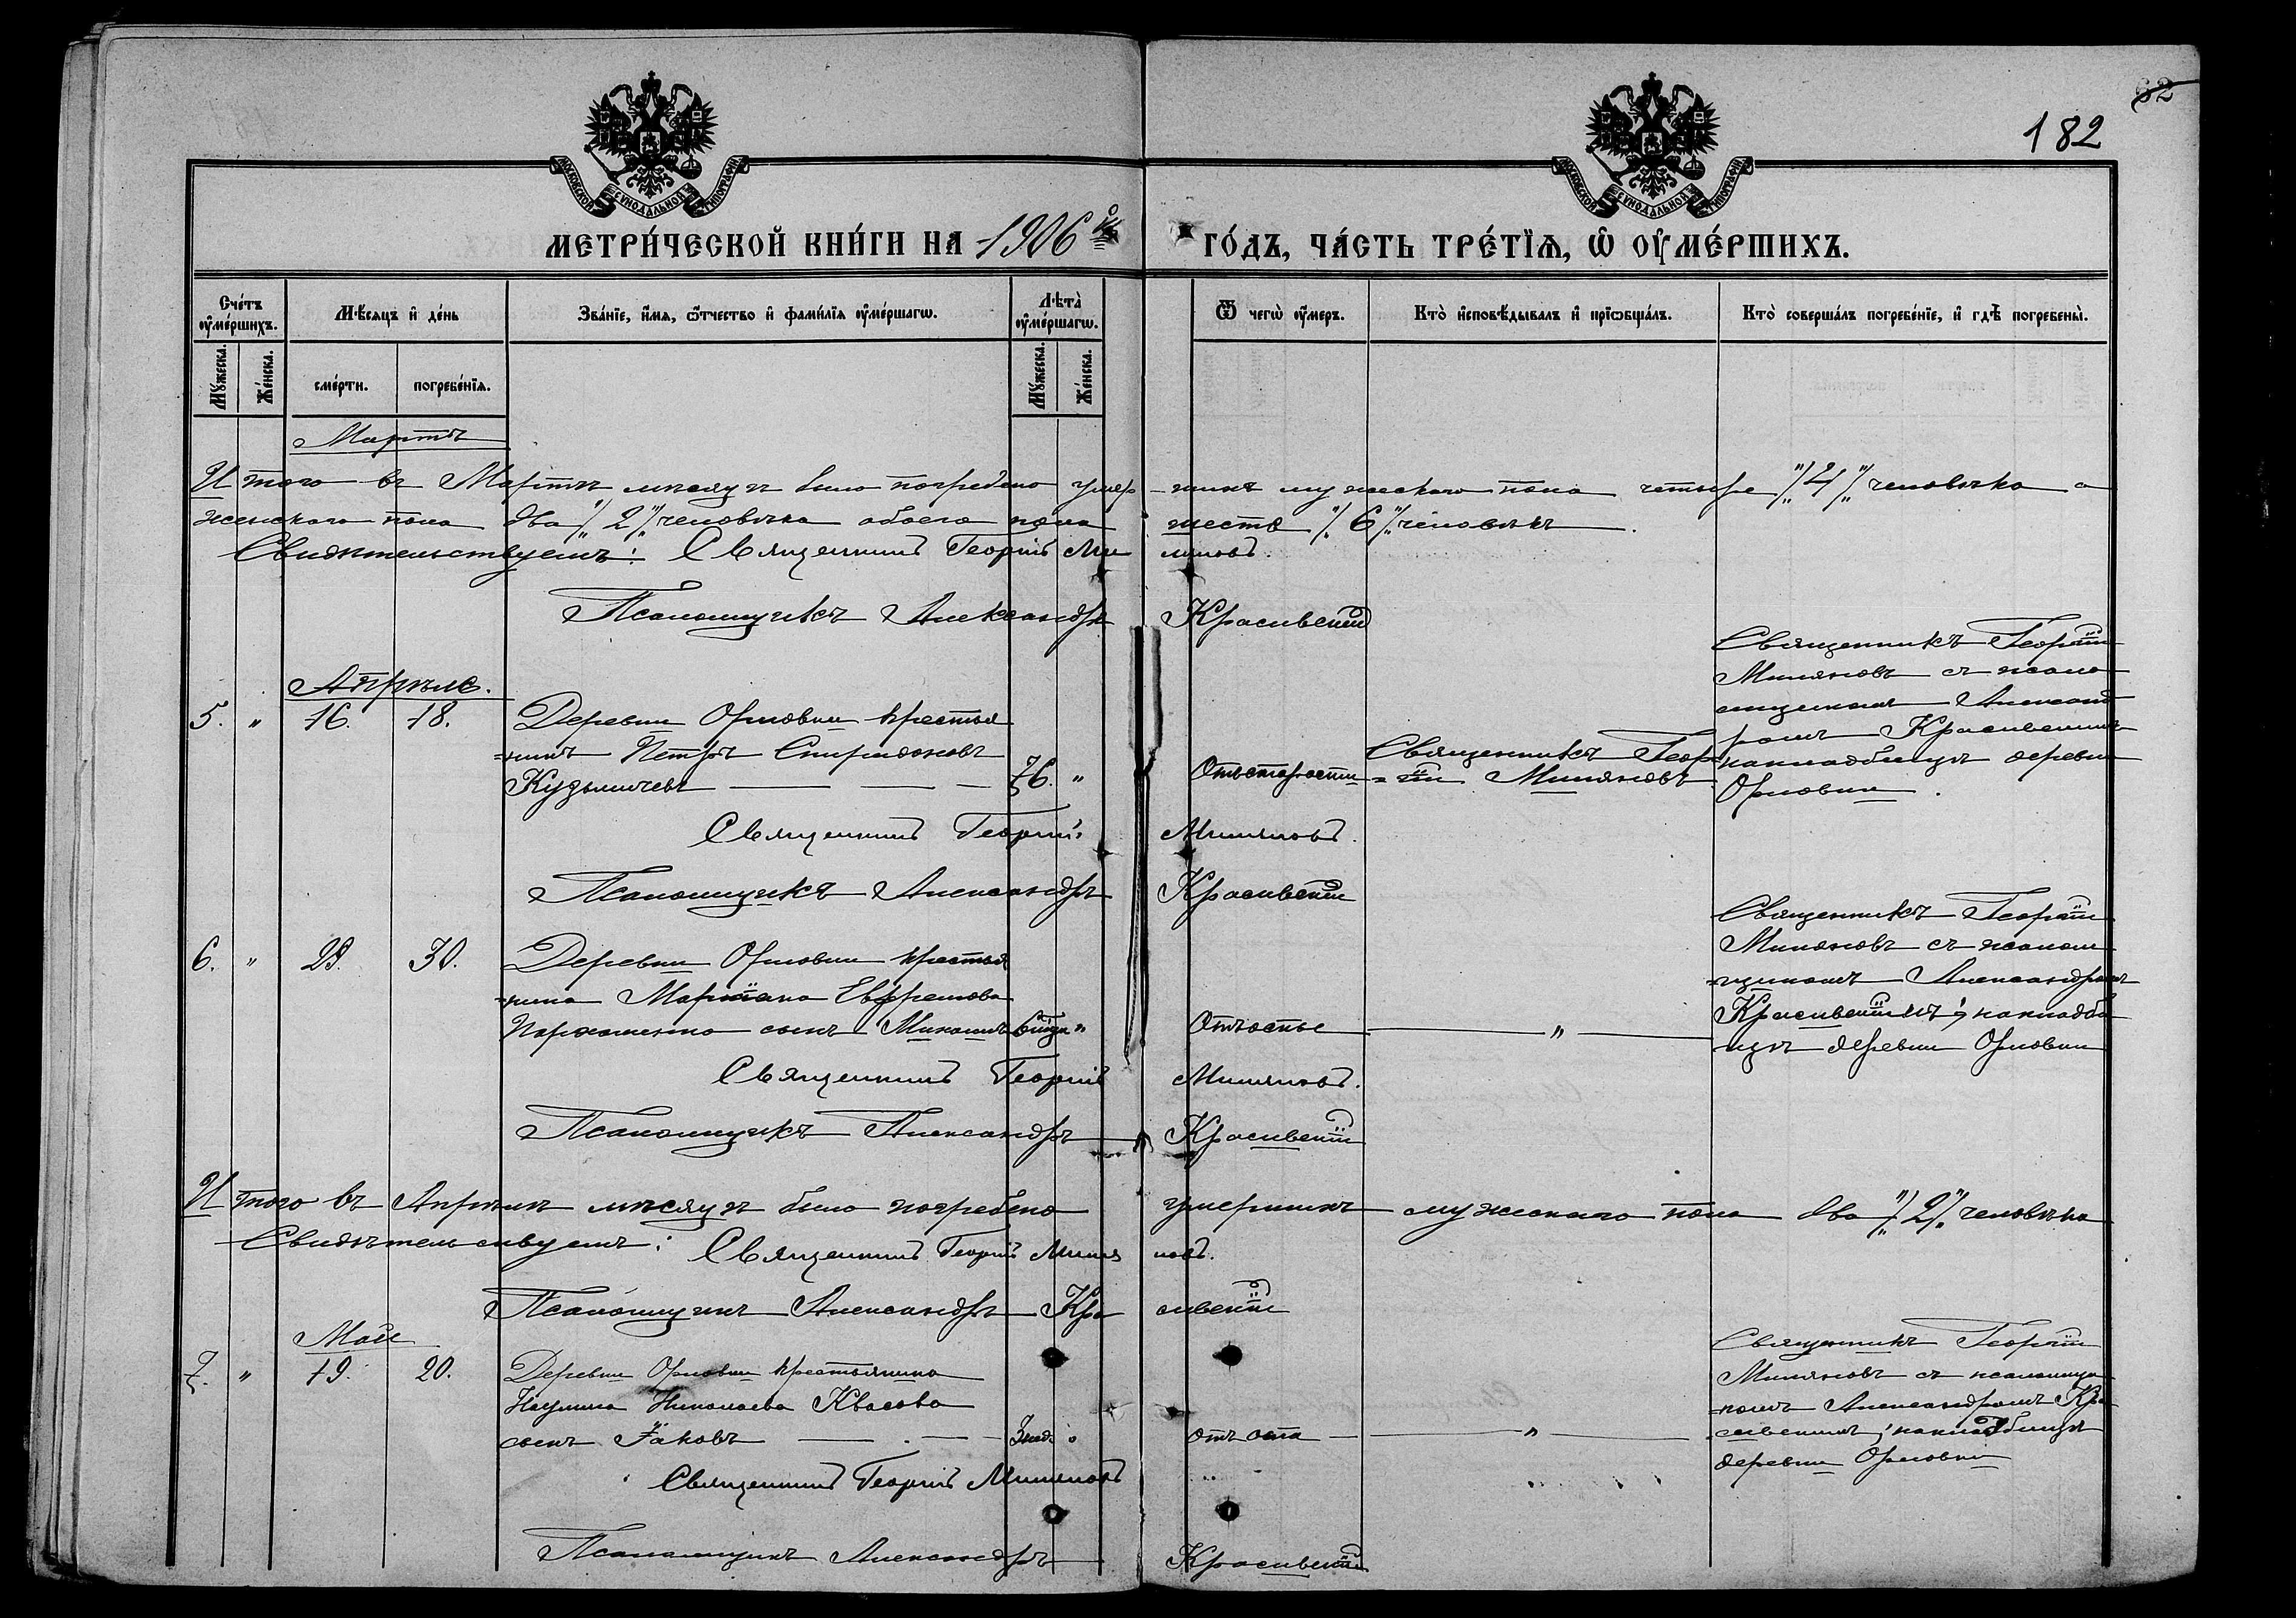 62
182
МОСКОВСКОЙ СѴНОДАЛЬНОЙ ТИПОГРАФІИ
МОСКОВСКОЙ СѴНОДАЛЬНОЙ ТИПОГРАФІИ
МЕТРИ́ЧЕСКОЙ КНИ́ГИ НА 1906й ГО́ДЪ, ЧА́СТЬ ТРЕ́ТЇѦ, Ѡ ОУ҆МЕ́РШИХЪ.
Сче́тъ оу҆ме́ршихъ.
Мꙋ́жеска.
Же́нска.
Мѣ́сяцъ и҆ де́нь
сме́рти.
погребе́нїѧ.
Зва́нїе, и҆́мѧ, ѻ҆́тчество и҆ фами́лїѧ оу҆ме́ршагѡ.
Лѣта̀ оу҆ме́ршагѡ.
Мꙋ́жеска.
Же́нска.
Ѿ чегѡ̀ оу҆́меръ.
Кто̀ и҆сповѣ́дывалъ и҆ прїѡбща́лъ.
Кто̀ соверша́лъ погребе́нїе, и҆ гдѣ̀ погребены̀.
Мартъ
Итого въ Мартѣ мѣсяцѣ было погребено умер-шихъ мужескаго пола четыре /4/ человѣка а
женскаго пола два /2/ человѣка обоего пола шесть /6/ человѣкъ.
Свидѣтельствуемъ: Священникъ Георгій Миляновъ.
Псаломщикъ Александръ Красивскій
Апрѣль.
5. " 16. 18.
Деревни Орловки крестья
=нинъ Петръ Спиридоновъ
Кузьмичевъ — — — 76. "
Отъ старости
Священникъ Геор-
=гій Миляновъ
Священникъ Георгій
Миляновъ съ псало
мщикомъ Александ
ромъ Красивскимъ
на кладбищѣ деревни
Орловки.
Священникъ Георгій Миляновъ.
Псаломщикъ Александръ Красивскій
6. " 29. 30.
Деревни Орловки крестья
=нина Ефремова
Пархоменко сынъ
"
Священникъ Георгій
Миляновъ съ псалом
=щикомъ Александромъ
Красивскимъ, на кладби
щѣ деревни Орловки
Священникъ Георгій Миляновъ.
Псаломщикъ Александръ Красивскій
Итого въ Апрѣлѣ мѣсяцѣ было погребено умершихъ мужескаго пола два /2/ человѣка
Свидѣтельствуемъ: Священникъ Георгій Миляновъ.
Псаломщикъ Александръ Красивскій
Май
7. " 19. 20.
Деревни Орловки крестьянина
Наумина Николаева Квасова
сынъ Іаковъ — — 3 нед. "
отъ оспа
"
Священникъ Георгій
Миляновъ съ псаломщи
=комъ Александромъ Кра
сивскимъ, на кладбищѣ
деревни Орловки
Священникъ Георгій Миляновъ
Псаломщикъ Александръ Красивскій